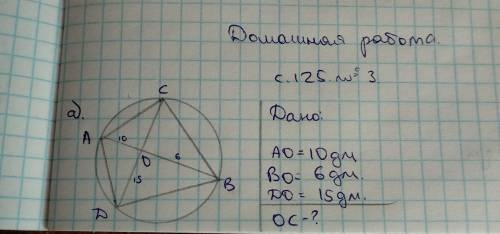 Домашная работа.
с. 125. № 3.
а).
C
A
10
O
6
15
B
D
Дано:
AO = 10 дм
BO = 6 дм.
DO = 15 дм.
OC - ?